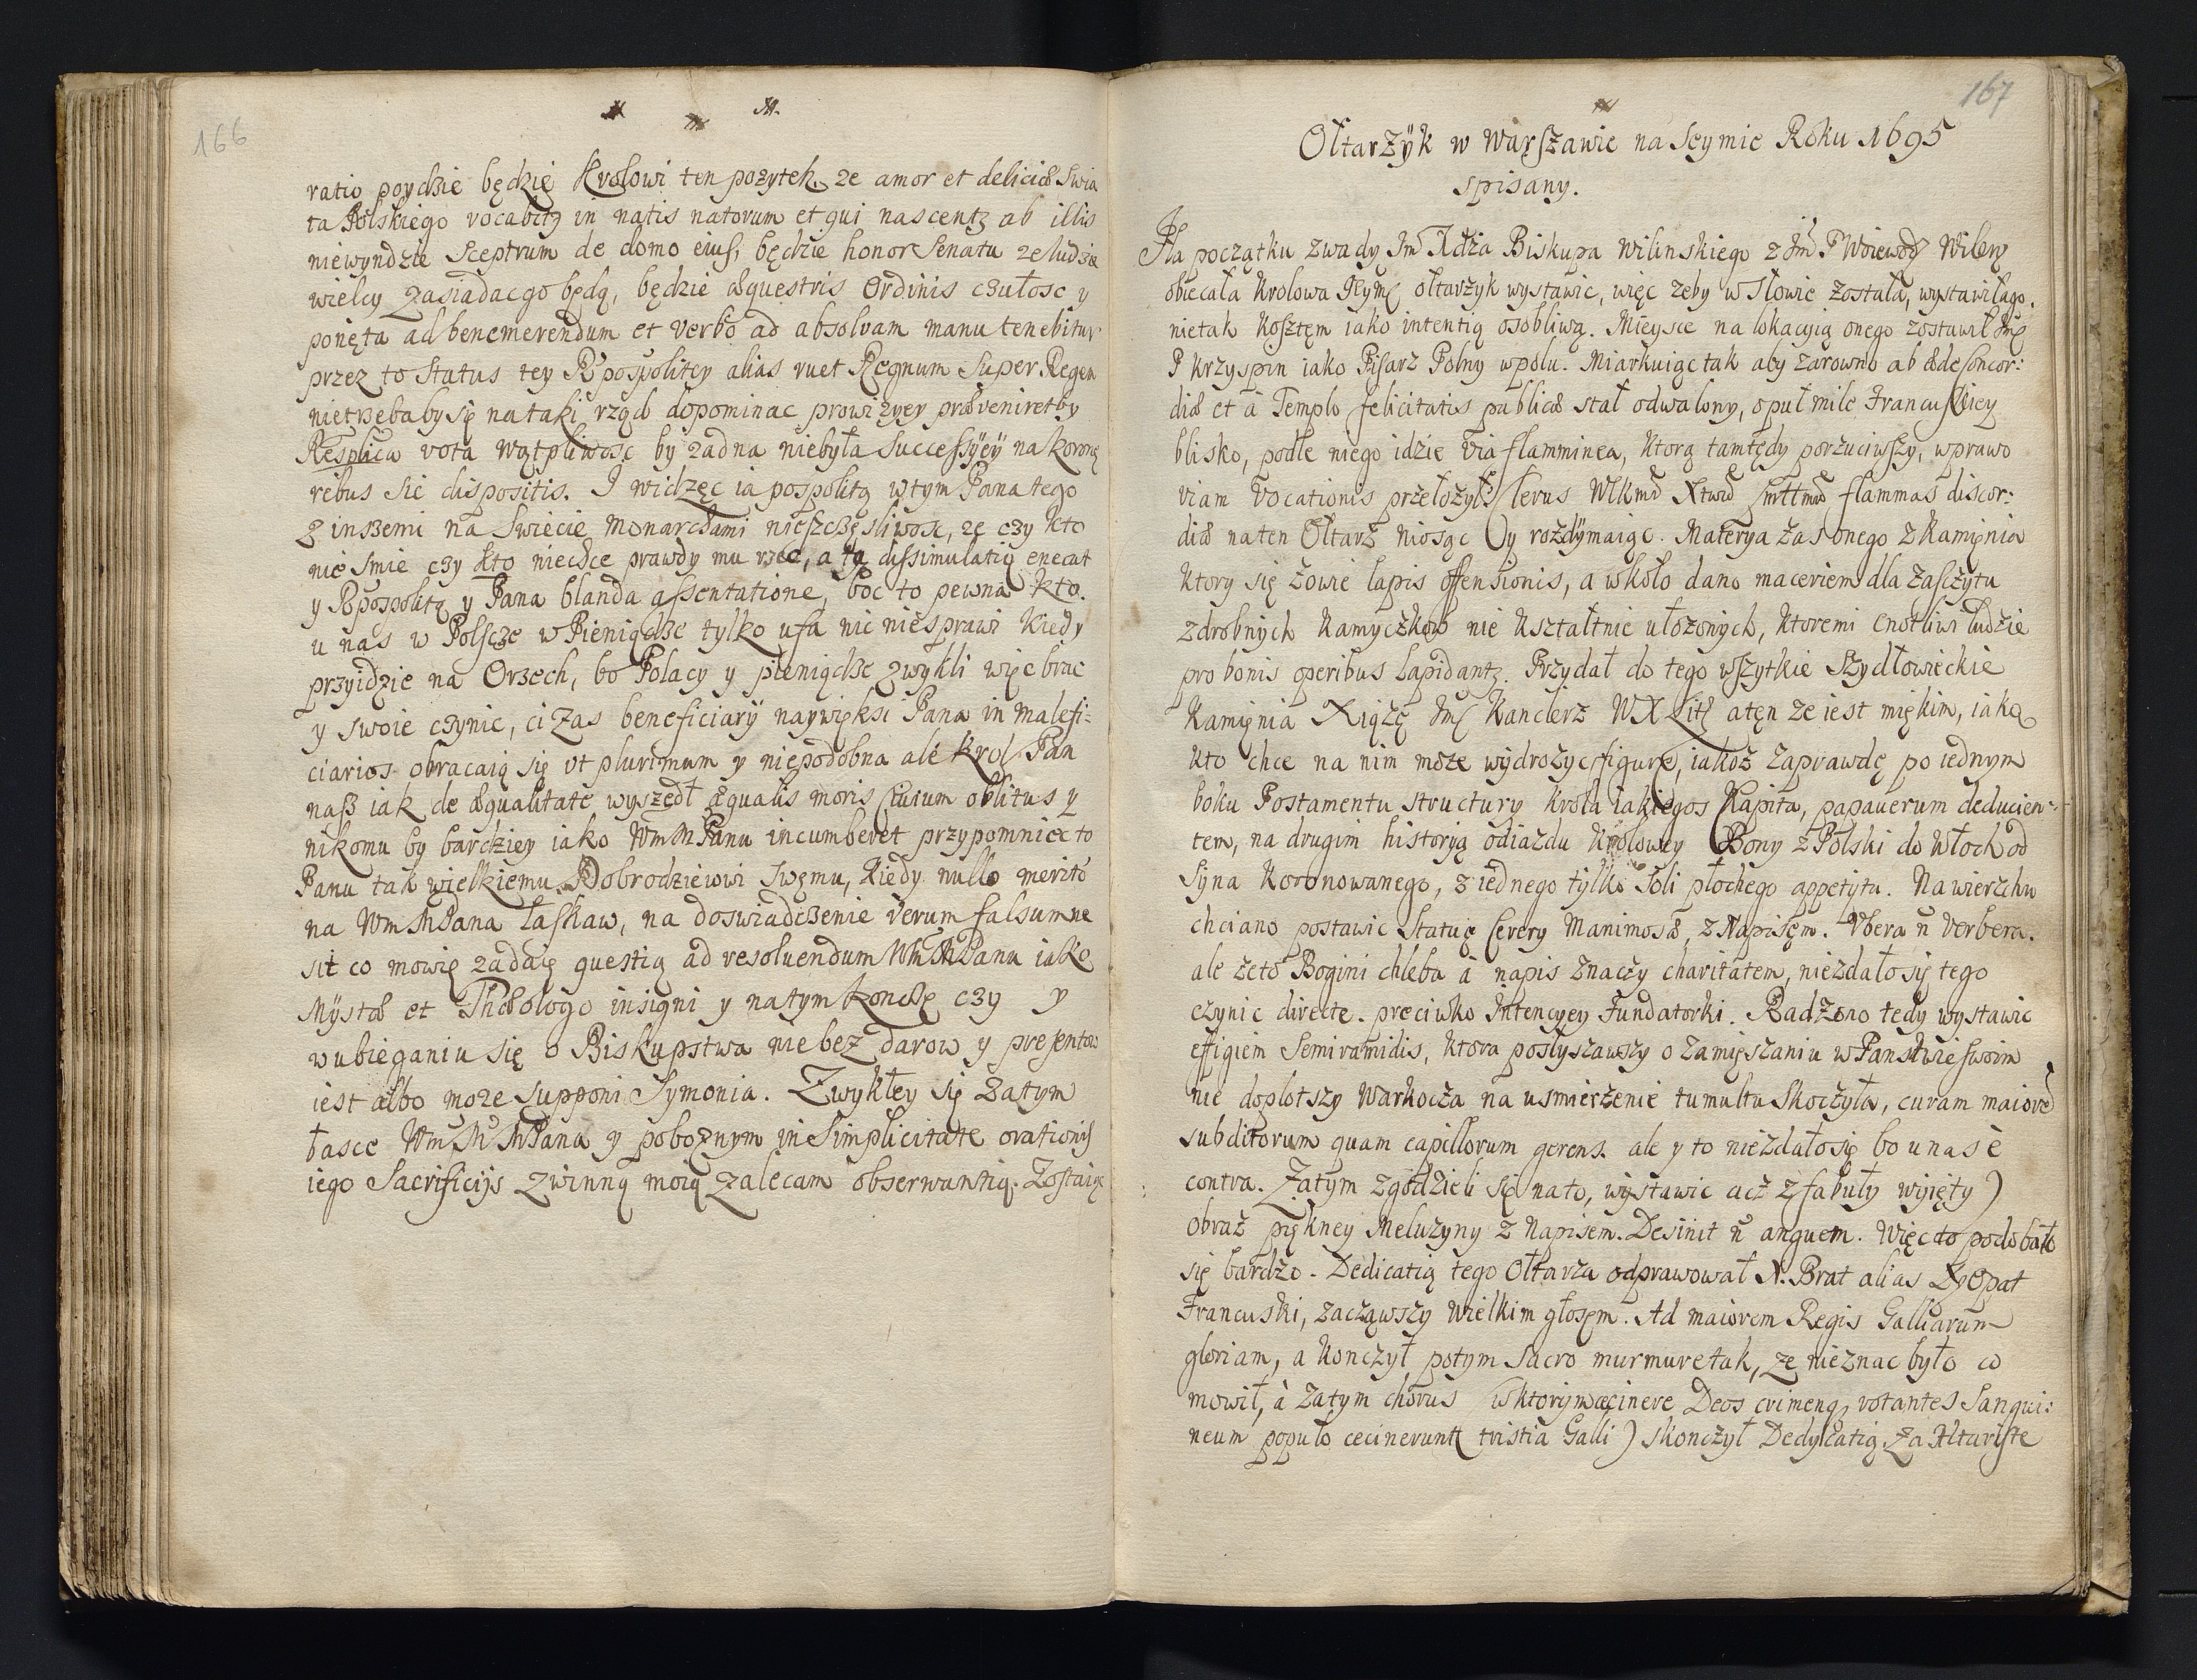 166
M.
ratio poydzie będzie Krolowi ten pozytek, ze amor et deliciæ Swia
ta Polskiego vocabitz in natis natorum et qui nascentz ab illis
niewyndzie Sceptrum de domo eius, będzie honor Senatu ze ludzie
wielcy zasiadac go będą, będzie æquestris Ordinis czułosc y
ponęta ad benemerendum et verbo ad absolvam manu tenebitur
przez to Status tey Rpospolitey alias ruet Regnum super Regem
nietrzebaby się nataki rząd dopominac prowizyey præveniretby
Resplica vota wątpliwosc by zadna niebyła Successÿeÿ na koronę
rebus sic dispositis. I widzęc ia pospolitą w tym Pana tego
z inszemi na Swiecie Monarchami nieszczęsliwosc, ze czy kto
nie smie czy kto niechce prawdy mu rzec, a tą dissimulatią enecat
y Rpospolitę y Pana blanda assentatione, boc to pewna kto
u nas w Polscze w Pieniądze tylko ufa nic niesprawi Kiedy
przyidzie na Orzech, bo Polacy y pieniądze zwykli więc brac
y swoie czynic, ci zas beneficiarÿ naywięksi Pana in malefi:
ciarios obracaią się ut plurimum y niepodobna ale Krol Pan
nasz iak de æqualitate wyszedł æqualis moris suum oblitus y
nikomu by bardziey iako WmMPanu incumberet przypomniec to
Panu tak wielkiemu Dobrodziewowi Swęmu, Kiedy nullo merito
na WmMPana łaskaw, na doswiadczenie verum falsum ne
sit co mowię zadaię questią ad resoluendum WmMPanu iako
Mÿstæ et Theologo insigni y na tym konczę czy y
w ubieganiu się o Biskupstwa nie bez darow y presentow
iest albo moze supponi Symonia. Zwykłey się zatym
łasce WmMMPana y poboznym in Simplicitate orationis
iego Sacrificijs zwinną moią zalecam obserwantią. Zostaię
167
Ołtarzÿk w Warszawie na Seymie Roku 1695
spisany.
Na początku zwady Jm Xdza Biskupa Wilinskiego z Jm P Woiewodą Wilen
obiecała Krolowa Jeym ołtarzyk wystawic, więc zeby w Słowie została, wystawiła go
nietak kosztęm iako intentią osobliwą. Mieysce na lokacyią onego zostawił Jm
P Krzyspin iako Pisarz Polny w polu. Miarkuiąc tak aby zarowno ab æde Concor:
diæ et à Templo felicitatis publicæ stał odwalony, opuł mile Francuskiey
blisko, podle niego idzie via flamminea, ktorą tamtędy porzuciwszy, w prawo
viam vocationis przełozył flammas discor:
diæ na ten Ołtarz niosąc y rozdÿmaiąc. Materya zas onego z Kamięnia
ktory się zowie lapis offensionis, a wkoło dano maceriem dla zasczytu
z drobnych Kamyczkow nie kształtnie ułozonych, ktoremi cnotliwi ludzie
pro bonis operibus lapidantz. Przydał do tego wszytkie Szydłowieckie
Kamięnia Xiążę Jm Kanclerz WXLit a tęn ze iest miękim, iaką
kto chce na nim moze wydrozyc figurę, iakoz zaprawdę po iednym
boku Postamentu structury krola iakiegos Kapita, papauerum deducien:
tem, na drugim historyą odiazdu Krolowey Bony z Polski do Włoch od
Syna Koronowanego, z iednego tylko soli płochego appetytu. Na wierzchu
chciano postawic Statuę Cerery Manimosæ, z Napisęm. Vbera ñ Verbera.
ale ze to Bogini chleba à napis znaczy charitatem, niezdało się tego
czynic directe preciwko Intencyey Fundatorki. Radzono tedy wystawic
effigiem Semiramidis, ktora posłyszawszy o zamięszaniu w Panstwie swoim
nie doplotszy Warkocza na usmierzenie tumultu skoczyła, curam maiorem
subditorum quam capillorum gerens. ale y to niezdało się bo u nas è
contra. Zatym zgodzieli się na to, wystawic acz z fabuły wyięty)
obraz piękney Meluzyny z Napisem. Desinit ñ anguem. Więc to podobało
się bardzo. Dedicatią tego Ołtarza odprawował X. Brat alias Xże Opat
Francuski, zacząwszy wielkim głosęm. Ad maiorem Regis Galliarum
gloriam, a konczył potym sacro murmure tak, ze nieznac było co
mowił, à zatym chorus (w ktorym cecinere Deos crimenq votantes Sangui:
neum populo cecinerunt tristia Galli) skonczył Dedykatią za Altariste